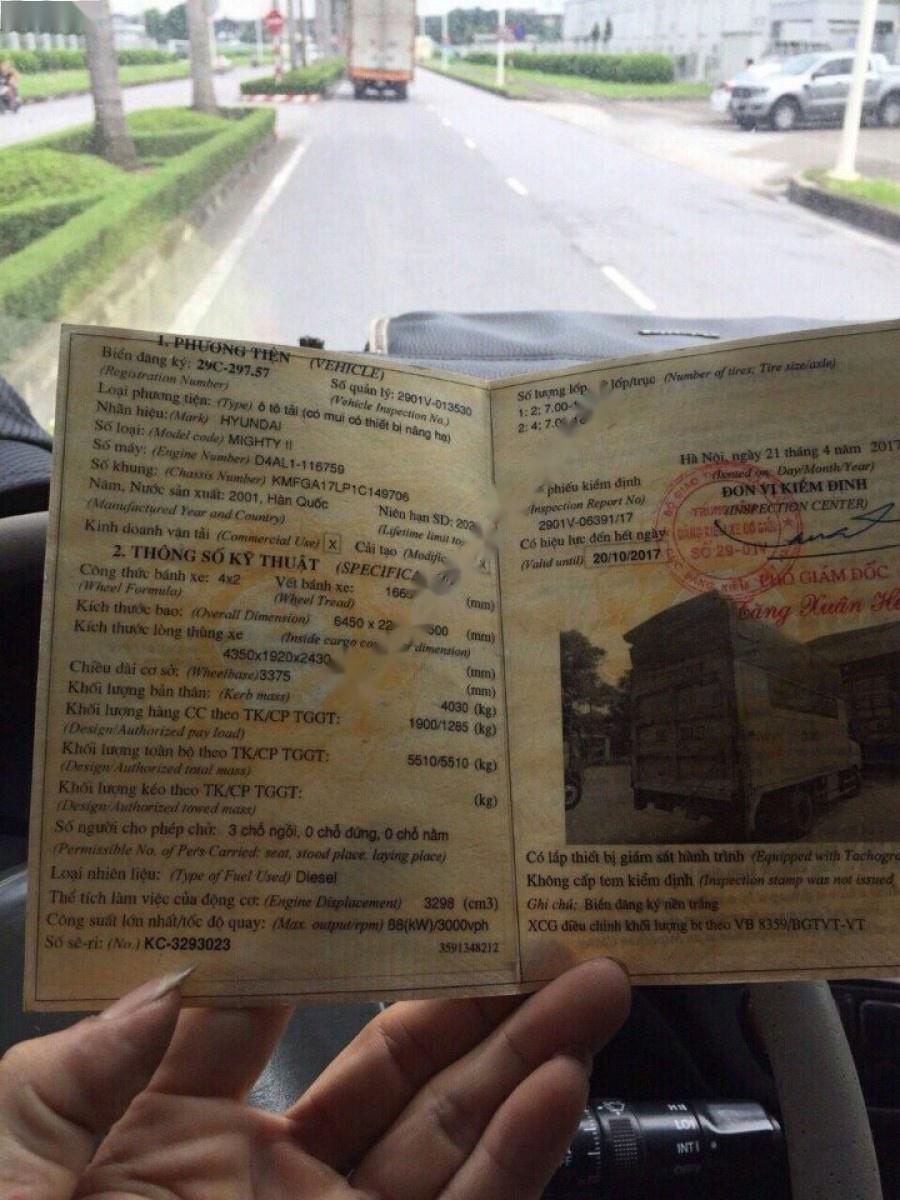 1. PHƯƠNG TIỆN (VEHICLE)
Biển đăng ký: 29C-297.57
(Registration Number)
Số quản lý: 2901V-013530
(Vehicle Inspection No.)
Loại phương tiện: (Type) ô tô tải (có mui có thiết bị nâng hạ)
Nhãn hiệu: (Mark) HYUNDAI
Số loại: (Model code) MIGHTY II
Số máy: (Engine Number) D4AL1-116759
Số khung: (Chassis Number) KMFGA17LP1C149706
Năm, Nước sản xuất: 2001, Hàn Quốc
(Manufactured Year and Country)
Niên hạn SD: 202
(Lifetime limit to
Kinh doanh vận tải (Commercial Use) X Cải tạo (Modific X
2. THÔNG SỐ KỸ THUẬT (SPECIFICA
Công thức bánh xe: 4x2
(Wheel Formula)
Vết bánh xe: 166 (mm)
(Wheel Tread)
Kích thước bao: (Overall Dimension) 6450 x 22 500 (mm)
Kích thước lòng thùng xe (Inside cargo co dimension)
4350x1920x2430 (mm)
Chiều dài cơ sở: (Wheelbase) 3375 (mm)
Khối lượng bản thân: (Kerb mass) 4030 (kg)
Khối lượng hàng CC theo TK/CP TGGT: 1900/1285 (kg)
(Design/Authorized pay load)
Khối lượng toàn bộ theo TK/CP TGGT: 5510/5510 (kg)
(Design/Authorized total mass)
Khối lượng kéo theo TK/CP TGGT: (kg)
(Design/Authorized towed mass)
Số người cho phép chở: 3 chỗ ngồi, 0 chỗ đứng, 0 chỗ nằm
(Permissible No. of Pers Carried: seat, stood place, laying place)
Loại nhiên liệu: (Type of Fuel Used) Diesel
Thể tích làm việc của động cơ: (Engine Displacement) 3298 (cm3)
Công suất lớn nhất/tốc độ quay: (Max. output/rpm) 88(kW)/3000vph
Số sê-ri: (No.) KC-3293023 3591348212
Số lượng lốp, lốp/trục (Number of tires; Tire size/axle)
1: 2; 7.00-
2: 4; 7.0
Hà Nội, ngày 21 tháng 4 năm 2017
(Issued on: Day/Month/Year)
phiếu kiểm định
(Inspection Report No)
2901V-06391/17
ĐƠN VỊ KIỂM ĐỊNH
(INSPECTION CENTER)
Có hiệu lực đến hết ngày
(Valid until) 20/10/2017
ĐĂNG KIỂM XE CƠ GIỚI
SỐ 29-01V
PHÓ GIÁM ĐỐC
Có lắp thiết bị giám sát hành trình (Equipped with Tachogra
Không cấp tem kiểm định (Inspection stamp was not issued
Ghi chú: Biển đăng ký nền trắng
XCG điều chỉnh khối lượng bt theo VB 8359/BGTVT-VT
LO
INT
OFF